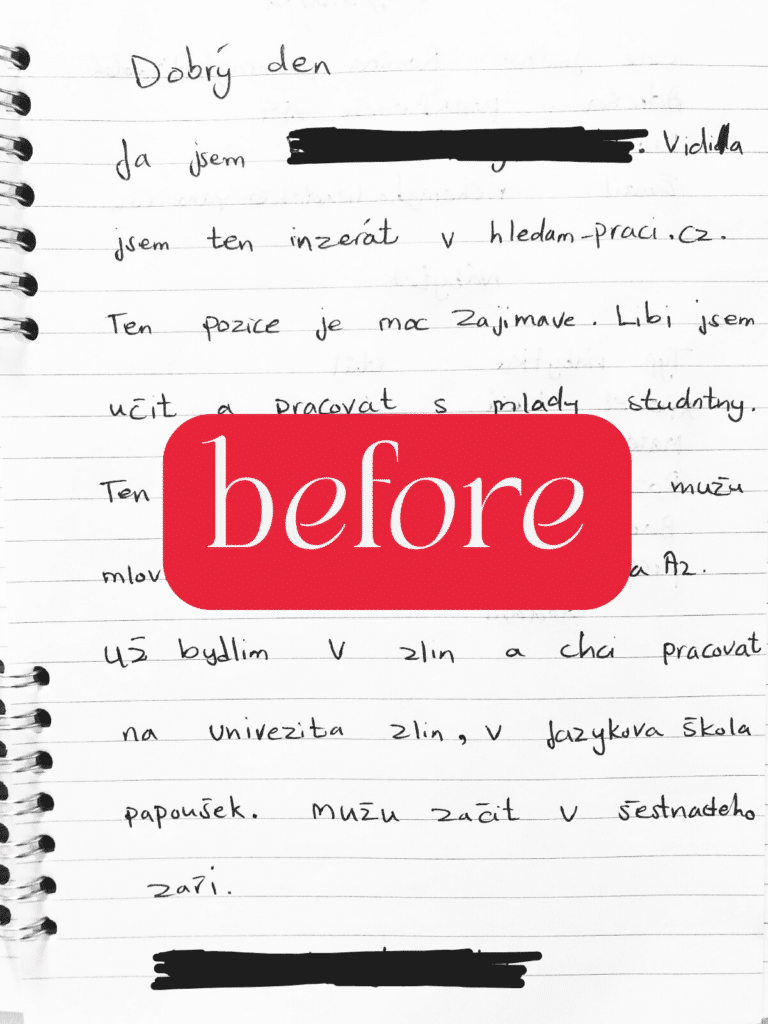 Dobrý den
Ja jsem . Vidila
jsem ten inzerát v hledam-praci.cz.
Ten pozice je moc zajimave. Libi jsem
učit a pracovat s mlady studntny.
before
Ten mužu
a A2.
už bydlim v zlin a chci pracovat
na univezita zlin, v Jazykova škola
papoušek. mužu začit v šestnacteho
zaři.